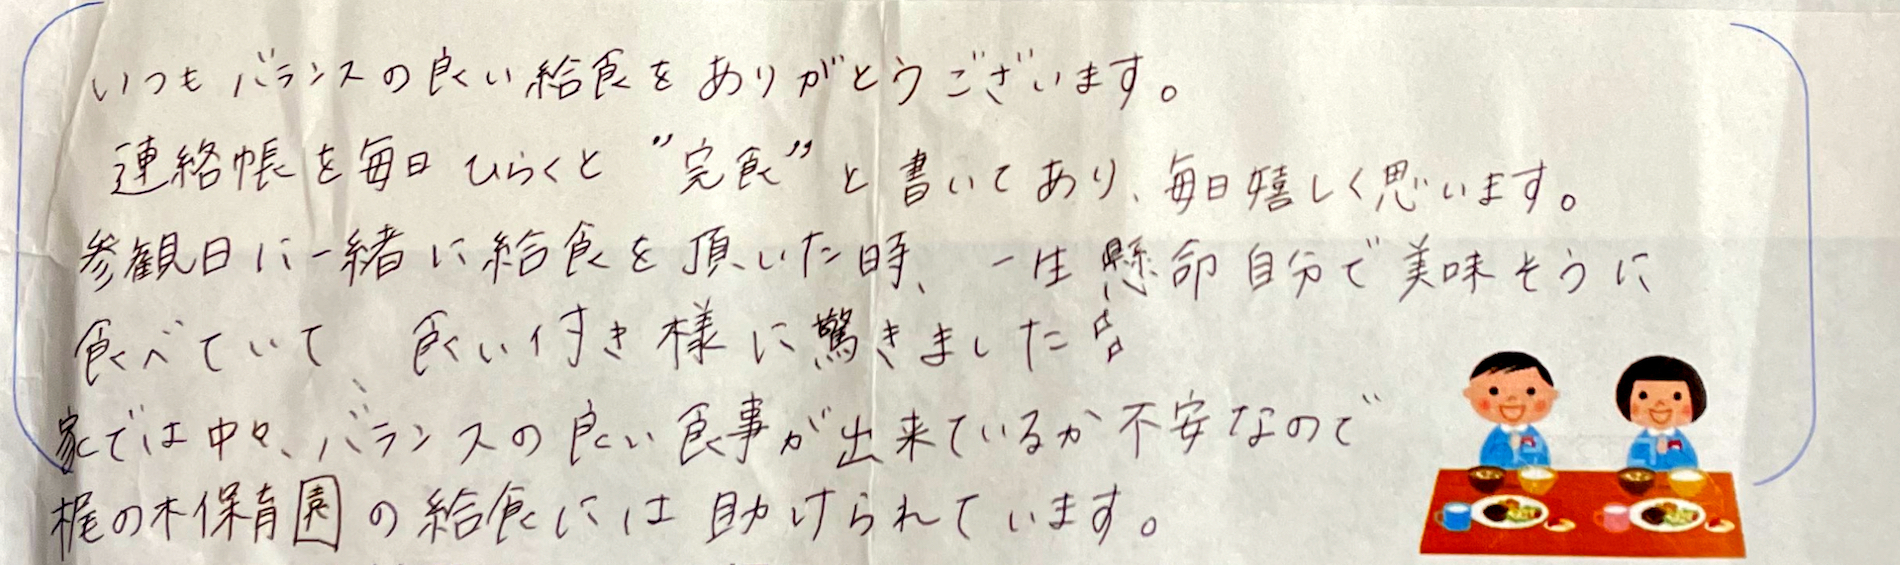 いつもバランスの良い給食をありがとうございます。
連絡帳を毎日ひらくと〝完食〟と書いてあり、毎日嬉しく思います。
参観日に一緒に給食を頂いた時、一生懸命自分で美味そうに
食べていて、食い付き様に驚きました
家では中々、バランスの良い食事が出来ているか不安なので
梶の木保育園の給食には助けられています。